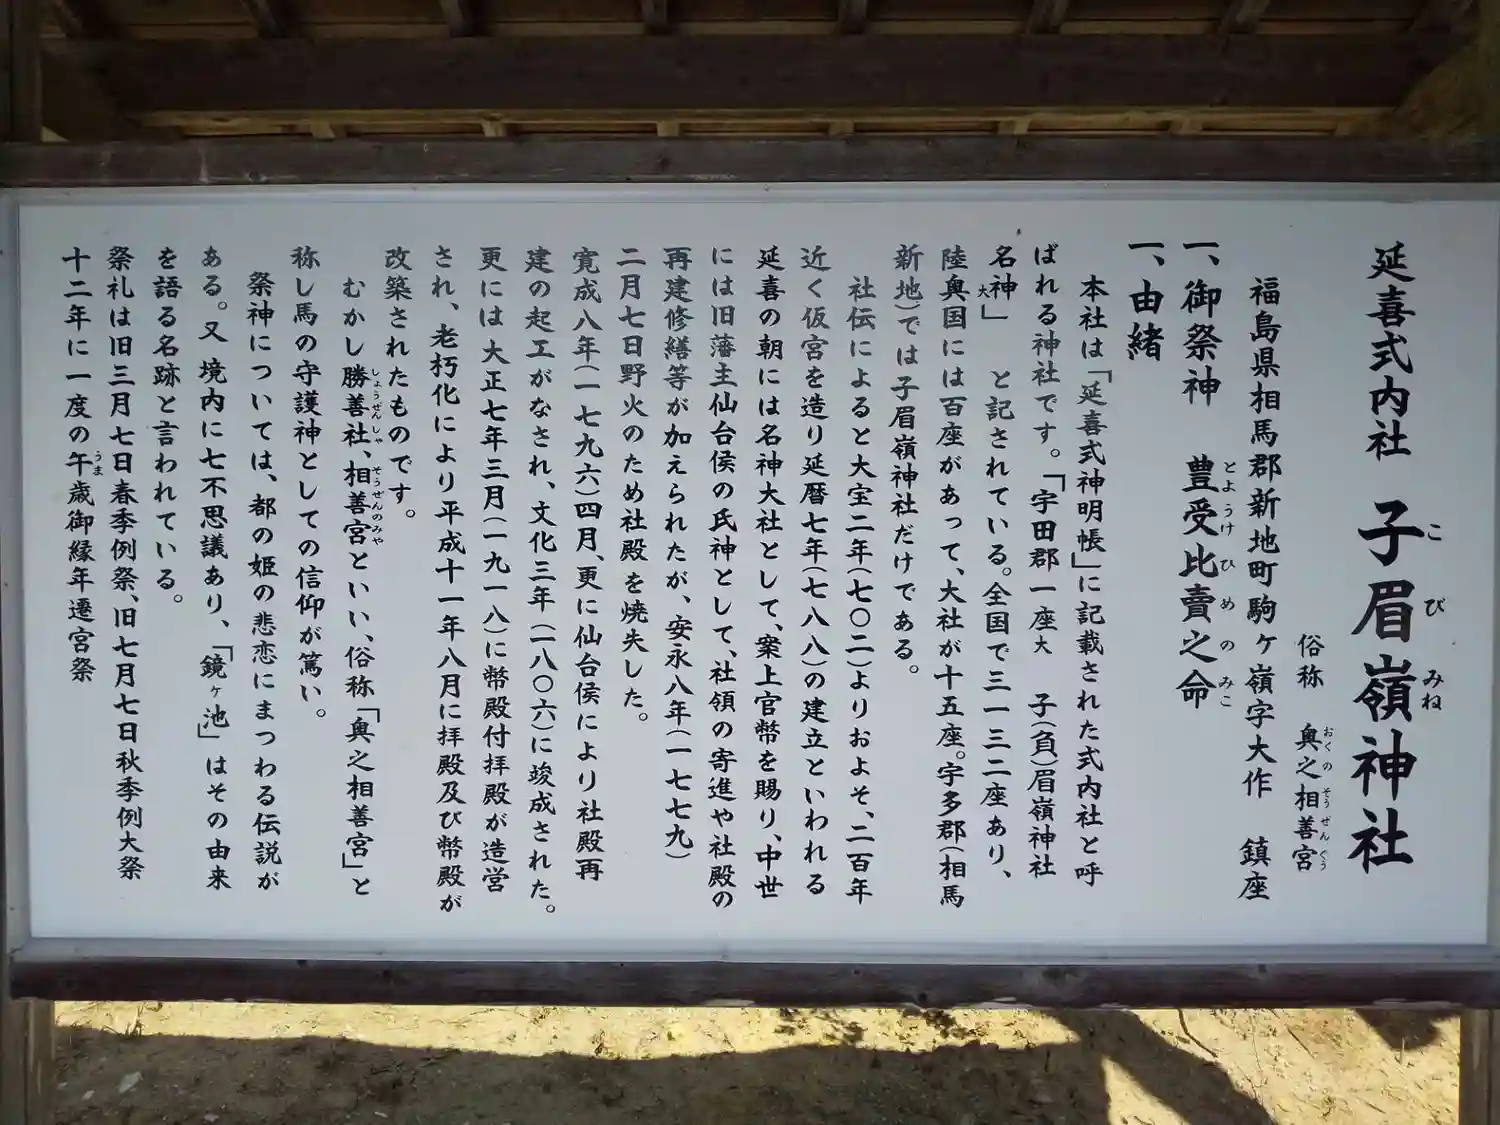 延喜式内社 子眉嶺神社
こ び みね
俗称 奥之相善宮
おくの そうぜんぐう
福島県相馬郡新地町駒ヶ嶺字大作 鎮座
一、御祭神 豊受比賣之命
とようけひめのみこ
一、由緒
本社は「延喜式神明帳」に記載された式内社と呼
ばれる神社です。「宇田郡一座大 子(負)眉嶺神社
名神大」 と記されている。全国で三一三二座あり、
陸奥国には百座があって、大社が十五座。宇多郡(相馬
新地)では子眉嶺神社だけである。
社伝によると大宝二年(七〇二)よりおよそ、二百年
近く仮宮を造り延暦七年(七八八)の建立といわれる
延喜の朝には名神大社として、案上官幣を賜り、中世
には旧藩主仙台侯の氏神として、社領の寄進や社殿の
再建修繕等が加えられたが、安永八年(一七七九)
二月七日野火のため社殿を焼失した。
寛成八年(一七九六)四月、更に仙台侯により社殿再
建の起工がなされ、文化三年(一八〇六)に竣成された。
更には大正七年三月(一九一八)に幣殿付拝殿が造営
され、老朽化により平成十一年八月に拝殿及び幣殿が
改築されたものです。
むかし勝善社、相善宮といい、俗称「奥之相善宮」と
しょうぜんしゃ そうぜんのみや
称し馬の守護神としての信仰が篤い。
祭神については、都の姫の悲恋にまつわる伝説が
ある。又 境内に七不思議あり、「鏡ヶ池」はその由来
を語る名跡と言われている。
祭礼は旧三月七日春季例祭、旧七月七日秋季例大祭
十二年に一度の午歳御縁年遷宮祭
うま